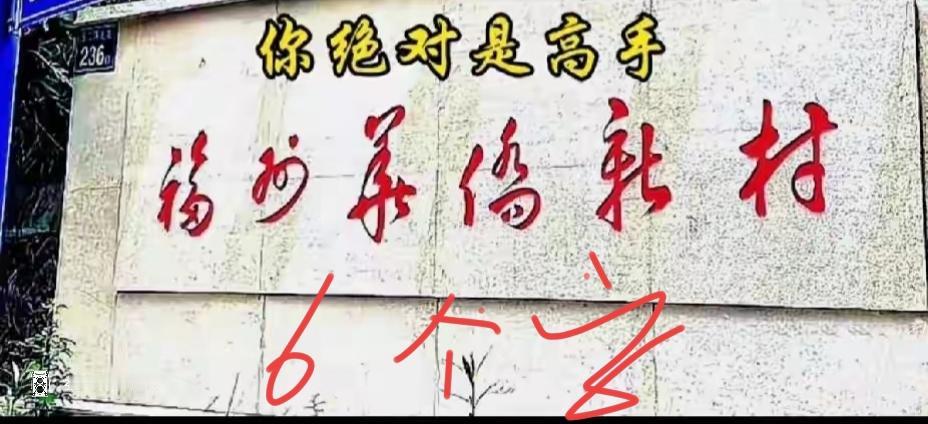 你绝对是高手
236
福州華僑新村
6个字